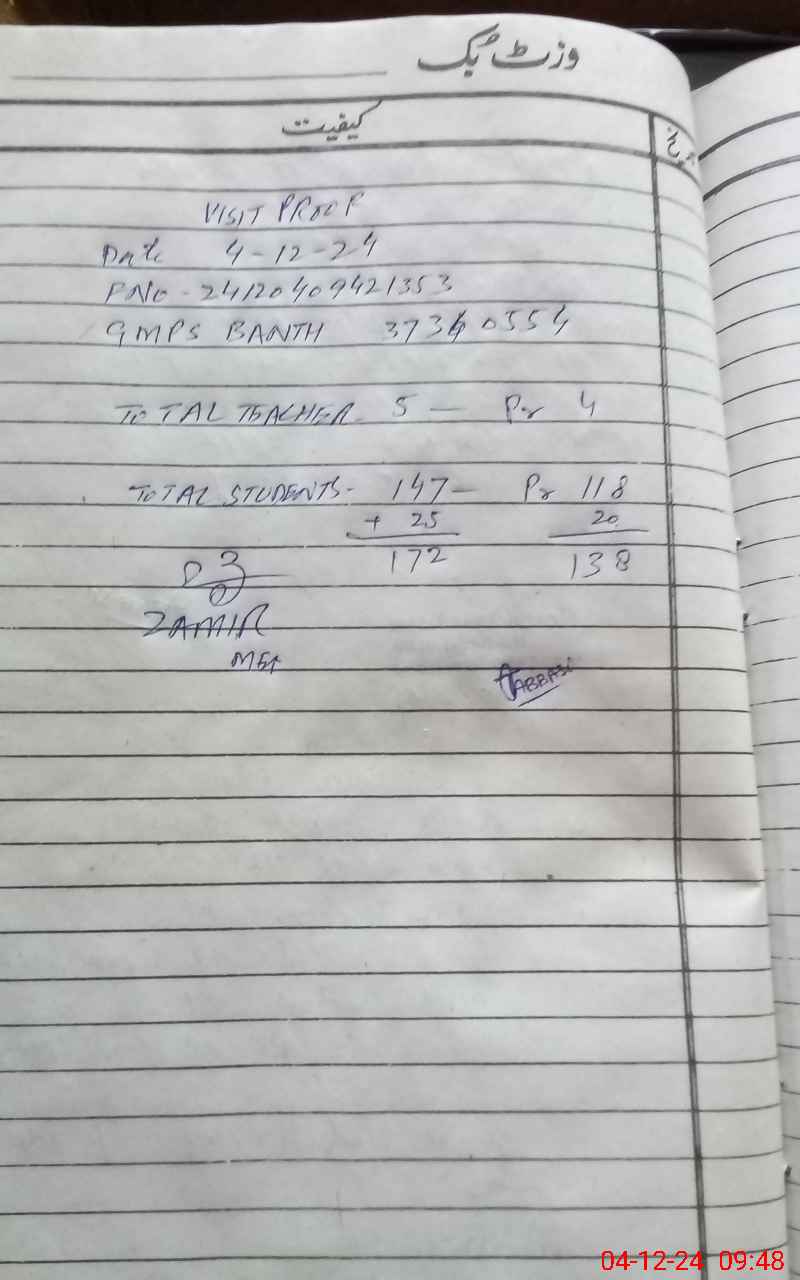 وزٹ بک
کیفیت
VISIT PROOF
Date 4-12-24
PNo - 24120409421353
GMPS BANTH 37340554
TOTAL TEACHER 5 — Pr 4
TOTAL STUDENTS - 147 — Pr 118
+ 25 20
172 138
ZAMIR
ABBASI
04-12-24 09:48